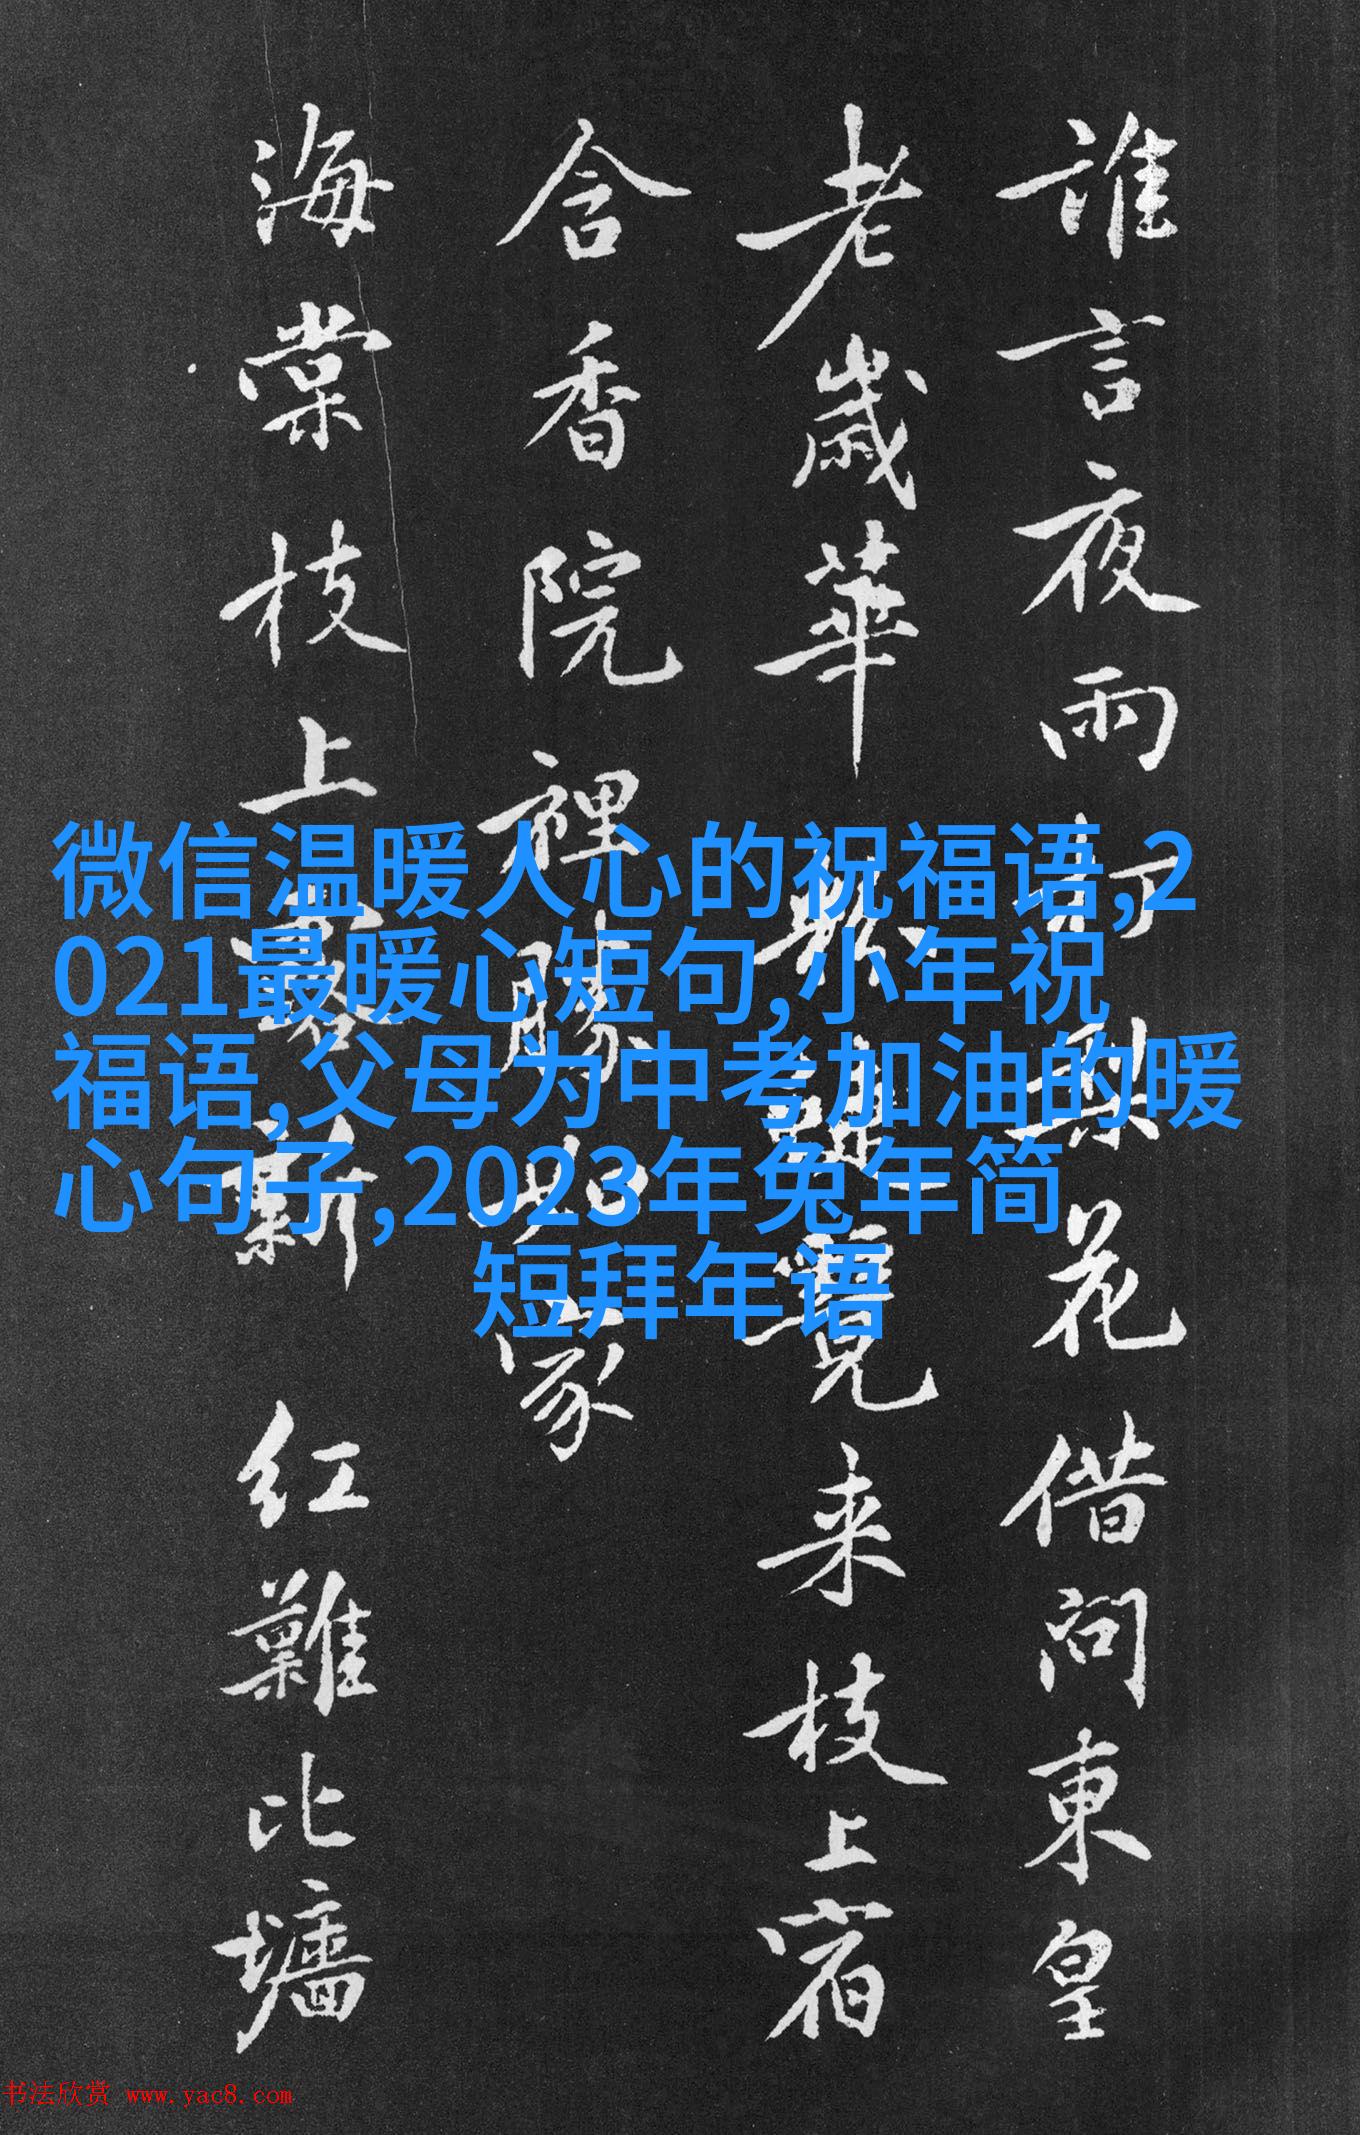 誰言夜雨 梨花借問東皇
老歲華 來枝上宿
含香院裡勝 家
海棠枝上 新 红難比墻
微信温暖人心的祝福语,2
021最暖心短句,小年祝
福语,父母为中考加油的暖
心句子,2023年兔年简
短拜年语
书法欣赏 www.yac8.com